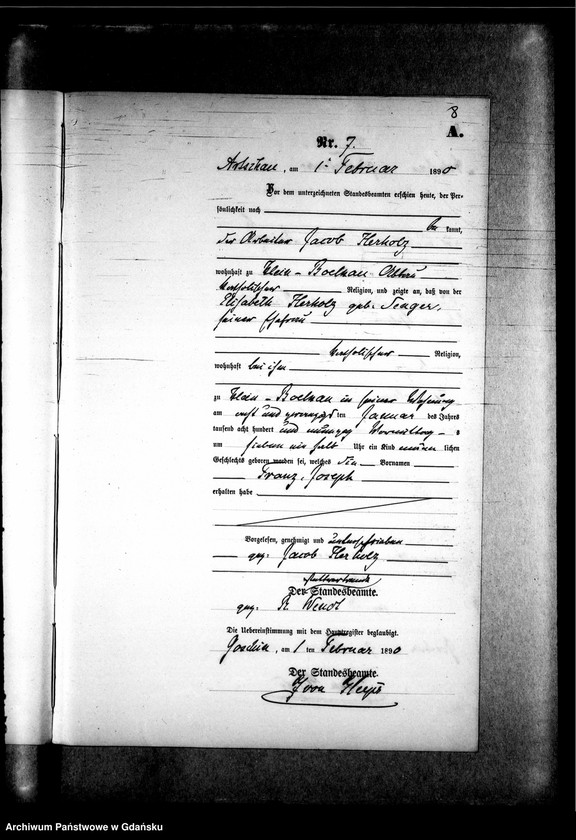 8
A.
Nr. 7.
am 1. Februar 1890
Vor dem unterzeichneten Standesbeamten erschien heute, der Per-
sönlichkeit nach
kannt,
der Arbeiter Jacob Herholz
wohnhaft zu Klein-Boelkau Abbau
katholischer Religion, und zeigte an, daß von der
Elisabeth Herholz geb. Senger,
seiner Ehefrau
katholischer Religion,
wohnhaft bei ihm
zu Klein-Boelkau in seiner Wohnung
am acht und zwanzigsten Januar des Jahres
tausend acht hundert und neunzig Vormittag-s
um sieben ein halb Uhr ein Kind männlichen
Geschlechts geboren worden sei, welches den Vornamen
Franz, Joseph
erhalten habe
Vorgelesen, genehmigt und unterschrieben
gez: Jacob Herholz
Der Standesbeamte.
gez: R. Wendt
Die Uebereinstimmung mit dem Hauptregister beglaubigt.
am 1 ten Februar 1890
Der Standesbeamte.
Archiwum Państwowe w Gdańsku